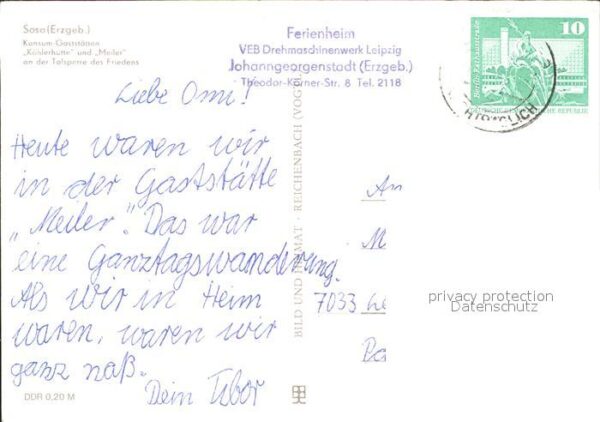 Sosa (Erzgeb.)
Konsum-Gaststätten
„Köhlerhütte" und „Meiler"
an der Talsperre des Friedens
Ferienheim
VEB Drehmaschinenwerk Leipzig
Johanngeorgenstadt (Erzgeb.)
Theodor-Körner-Str. 8 Tel. 2118
10
Liebe Omi!
Heute waren wir
in der Gaststätte
„Meiler". Das war
eine Ganztagswanderung.
Als wir in Heim
waren, waren wir
ganz naß.
Dein Tibor
BILD UND HEIMAT · REICHENBACH (VOGTL
An
M
7033 Le
privacy protection
Datenschutz
DDR 0,20 M